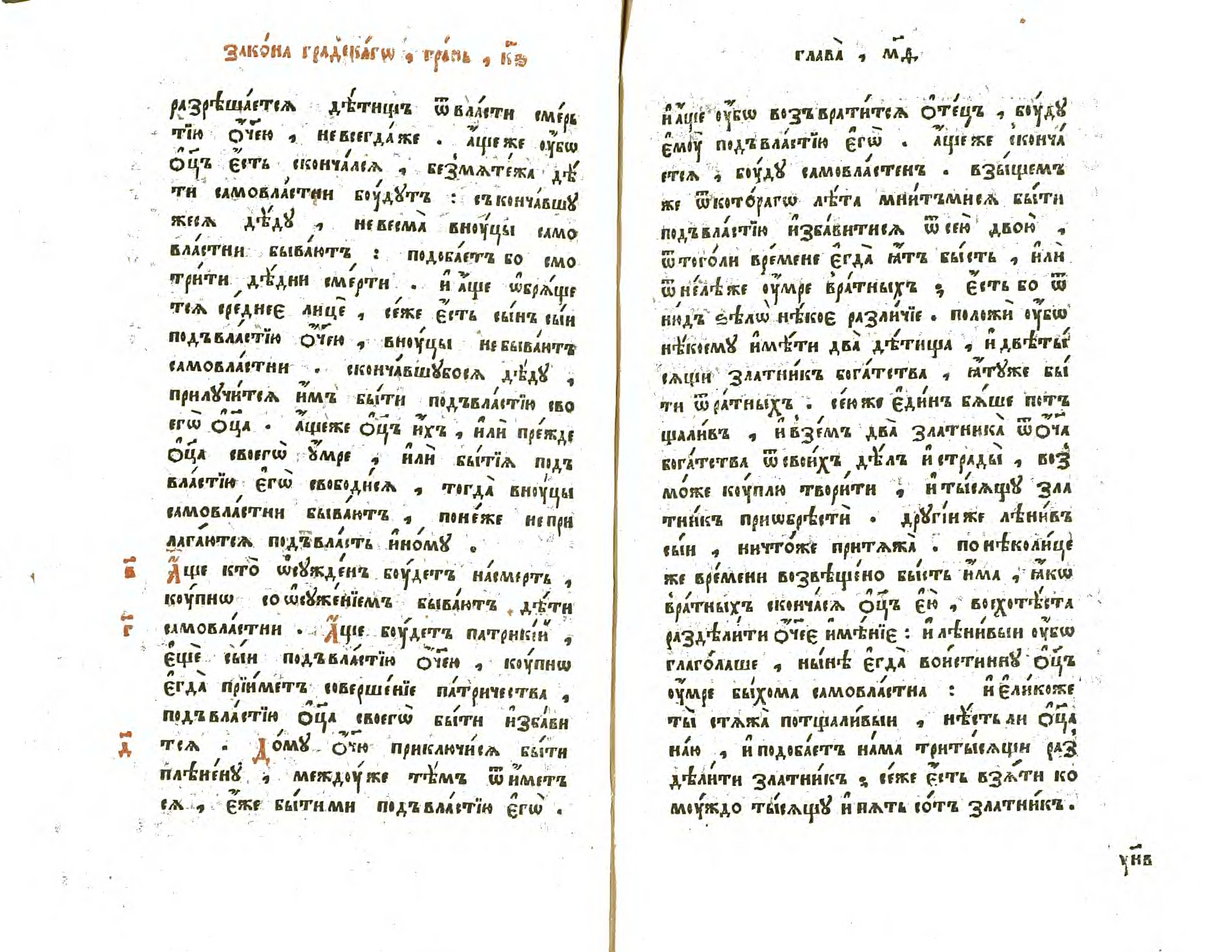 Зако́на гра́дскагѡ , гра́нь , к҃в
разрѣша́етсѧ дѣ́тищъ ѿвла́сти сме́рь
тїю ѻ҆́чею , невсегда́же . а҆́щеже ᲂу҆́бѡ
ѻ҆ц҃ъ є҆́сть сконча́лсѧ , безмѧте́жа дѣ́
ти самовла́стни бꙋ́дꙋтъ : съконча́вшꙋ
жесѧ дѣ́дꙋ , невесма̀ внꙋ́цы само
вла́стни быва́ютъ : подоба́етъ бо смо
три́ти дѣ́дни сме́рти . и҆ а҆́ще ѡ҆брѧ́ще
тсѧ сре́днее лицѐ , се́же є҆́сть сы́нъ сы́и
подъвла́стїю ѻ҆́чею , внꙋ́цы небыва́ютъ
самовла́стни . сконча́вшꙋбосѧ дѣ́дꙋ ,
прилꙋчи́тсѧ и҆̀мъ бы́ти подъвла́стїю сво
егѡ̀ ѻ҆ц҃а . а҆́щеже ѻ҆ц҃ъ и҆́хъ , и҆лѝ пре́жде
ѻ҆ц҃а своегѡ̀ ᲂу҆́мре , и҆лѝ бы́тїѧ подъ
вла́стїю є҆гѡ̀ свободи́сѧ , тогда̀ внꙋ́цы
самовла́стни быва́ютъ , поне́же непри
лага́ютсѧ подъвла́сть и҆но́мꙋ .
в҃
А҆́ще кто̀ ѡ҆сꙋжде́нъ бꙋ́детъ насме́рть ,
кꙋ́пнѡ соѡ҆сꙋже́нїемъ быва́ютъ дѣ́ти
г҃
самовла́стни . А҆́ще бꙋ́детъ патри́кїи ,
є҆щѐ сы́и подъвла́стїю ѻ҆́чею , кꙋ́пнѡ
є҆гда̀ прїи́метъ соверше́нїе па́тричества ,
подъвла́стїю ѻ҆ц҃а своегѡ̀ бы́ти и҆зба́ви
д҃
тсѧ . До́мꙋ ѻ҆́чю приключи́сѧ бы́ти
плѣне́нꙋ , междꙋ́же тѣ́мъ ѿи́метъ
сѧ , є҆́же бы́тими подъвла́стїю є҆гѡ̀ .
глава̀ , м҃д
и҆а҆́ще ᲂу҆́бѡ возъврати́тсѧ ѻ҆те́цъ , бꙋ́дꙋ
є҆мꙋ̀ подъвла́стїю є҆гѡ̀ . а҆́щеже сконча́
етсѧ , бꙋ́дꙋ самовла́стенъ . взы́щемъ
же ѿкото́рагѡ лѣ́та мни́тъмисѧ бы́ти
подъвла́стїю и҆зба́витисѧ ѿ сею̀ двою̀ ,
ѿтого́ли вре́мене є҆гда̀ ꙗ҆́тъ бы́сть , и҆лѝ
ѿнелѣ́же ᲂу҆́мре вра́тныхъ ; є҆́сть бо ѿ
нꙋ́дъ ѕѣлѡ̀ нѣ́кое разли́чїе . положѝ ᲂу҆́бѡ
нѣ́коемꙋ и҆мѣ́ти два̀ дѣ́тища , и҆двѣ́ты́
сѧщи зла́тникъ бога́тства , ꙗ҆́тꙋже бы́
ти ѿра́тныхъ . се́юже є҆ди́нъ бѧ́ше потъ
щали́въ , и҆взе́мъ два̀ зла́тника ѿѻ҆́ча
бога́тства ѿсвои́хъ дѣ́лъ и҆страды̀ , воз̾
мо́же кꙋ́плю твори́ти , и҆ты́сѧщꙋ зла́
тникъ приѡ҆брѣстѝ . дрꙋгі́иже лѣни́въ
сы́и , ничто́же притѧжа̀ . понѣко́лице
же вре́мени возвѣщено̀ бы́сть и҆́ма , ꙗ҆́кѡ
вра́тныхъ сконча́сѧ ѻ҆ц҃ъ є҆ю̀ , восхотѣ́ста
раздѣли́ти ѻ҆́чее и҆мѣ́нїе : и҆лѣни́выи ᲂу҆́бѡ
глаго́лаше , ны́нѣ є҆гда̀ вои́стиннꙋ ѻ҆ц҃ъ
ᲂу҆́мре бы́хома самовла́стна : и҆є҆ли́коже
ты̀ стѧжа̀ потщали́выи , нѣ́сть ли ѻ҆ц҃а
на́ю , и҆подоба́етъ на́ма триты́сѧщи раз̾
дѣли́ти зла́тникъ ; се́же є҆́сть взѧ́ти ко
мꙋ́ждо ты́сѧщꙋ и҆пѧ́ть со́тъ зла́тникъ .
ун҃в